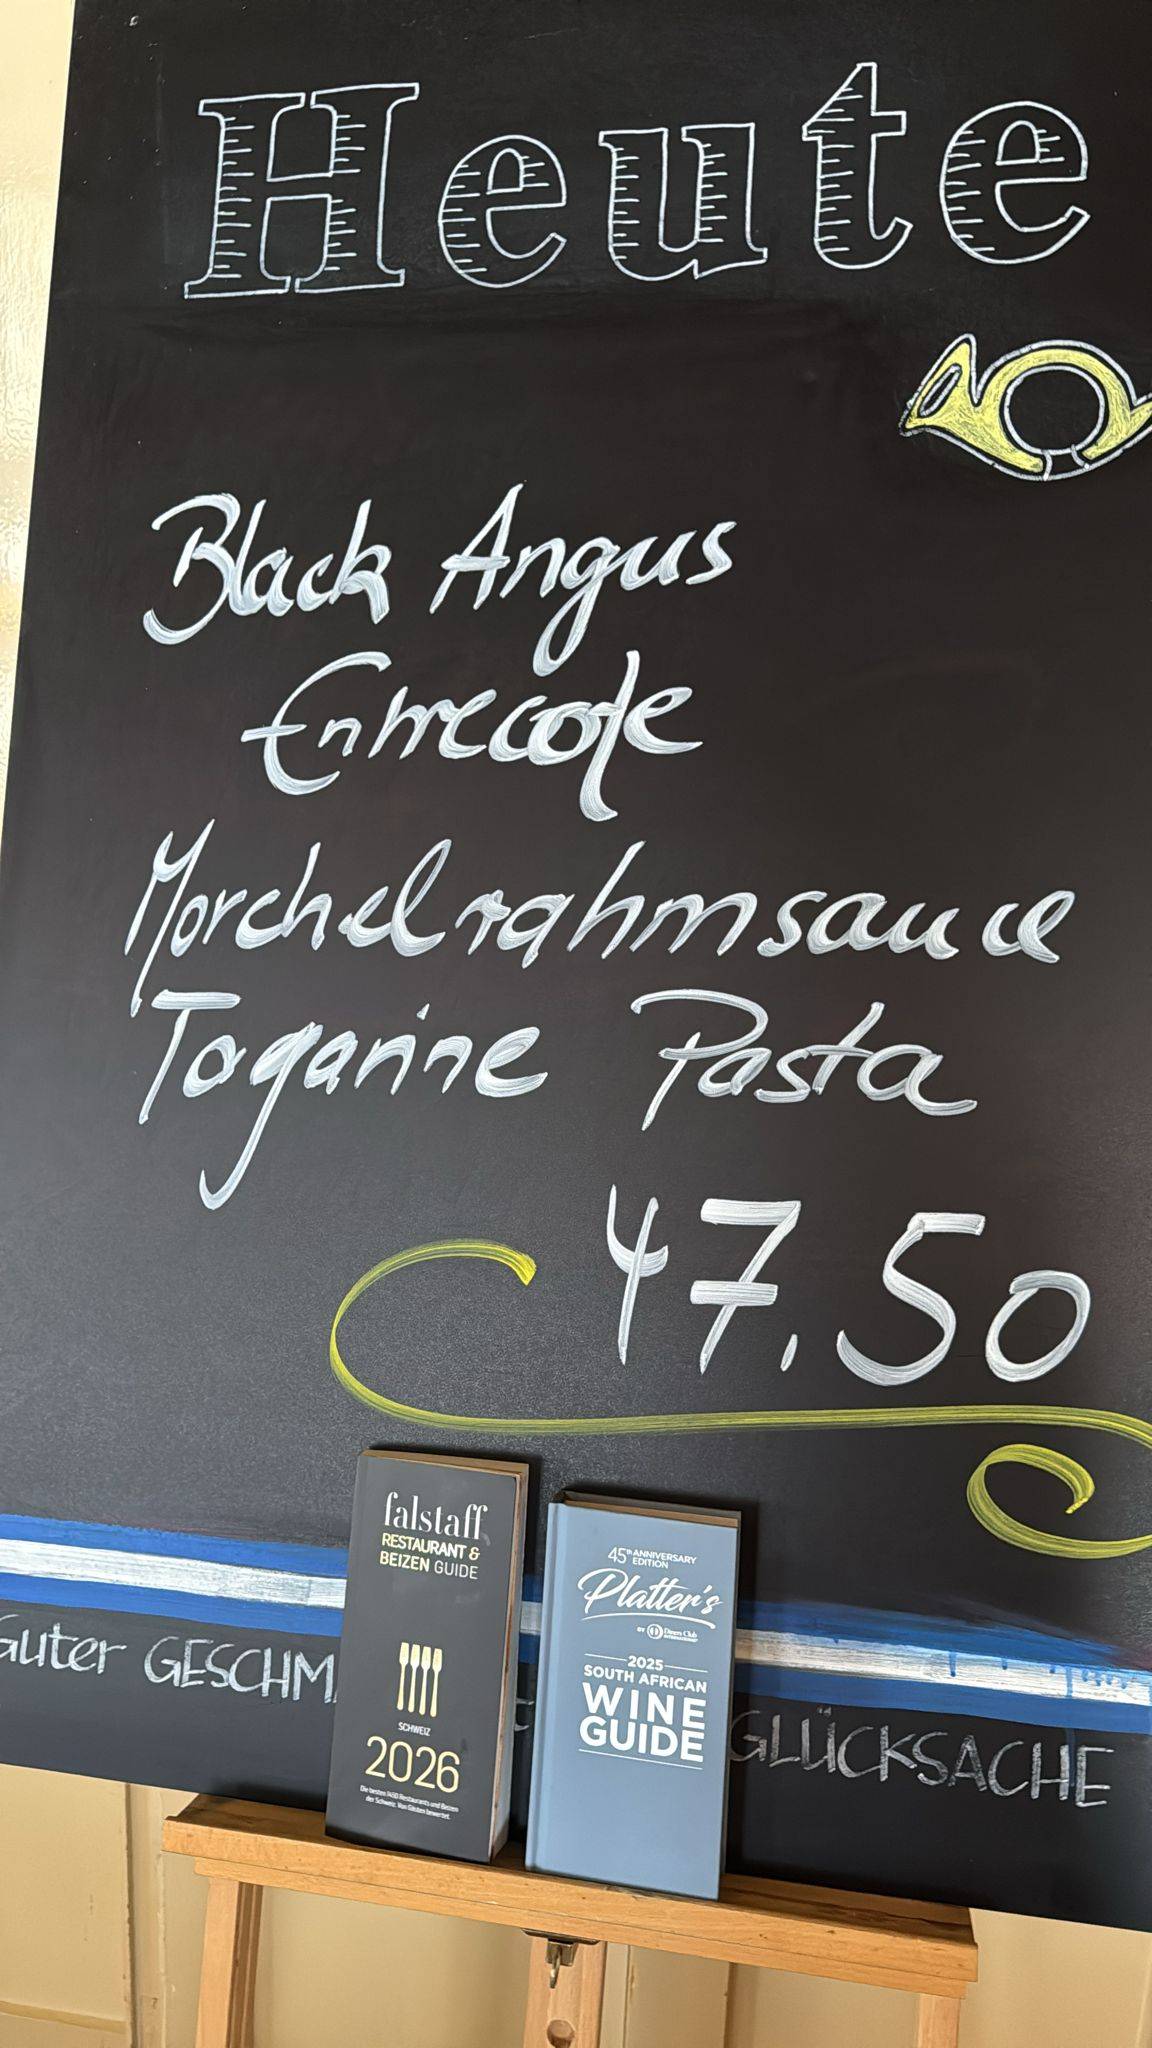 Heute
Black Angus
Entrecote
Morchelrahmsauce
Toganine Pasta
47.50
falstaff
RESTAURANT &
BEIZEN GUIDE
SCHWEIZ
2026
Die besten 1450 Restaurants und Beizen
der Schweiz. Von Gästen bewertet.
45th ANNIVERSARY
EDITION
Platter's
BY Diners Club
INTERNATIONAL
2025
SOUTH AFRICAN
WINE
GUIDE
Guter GESCHM
GLÜCKSACHE